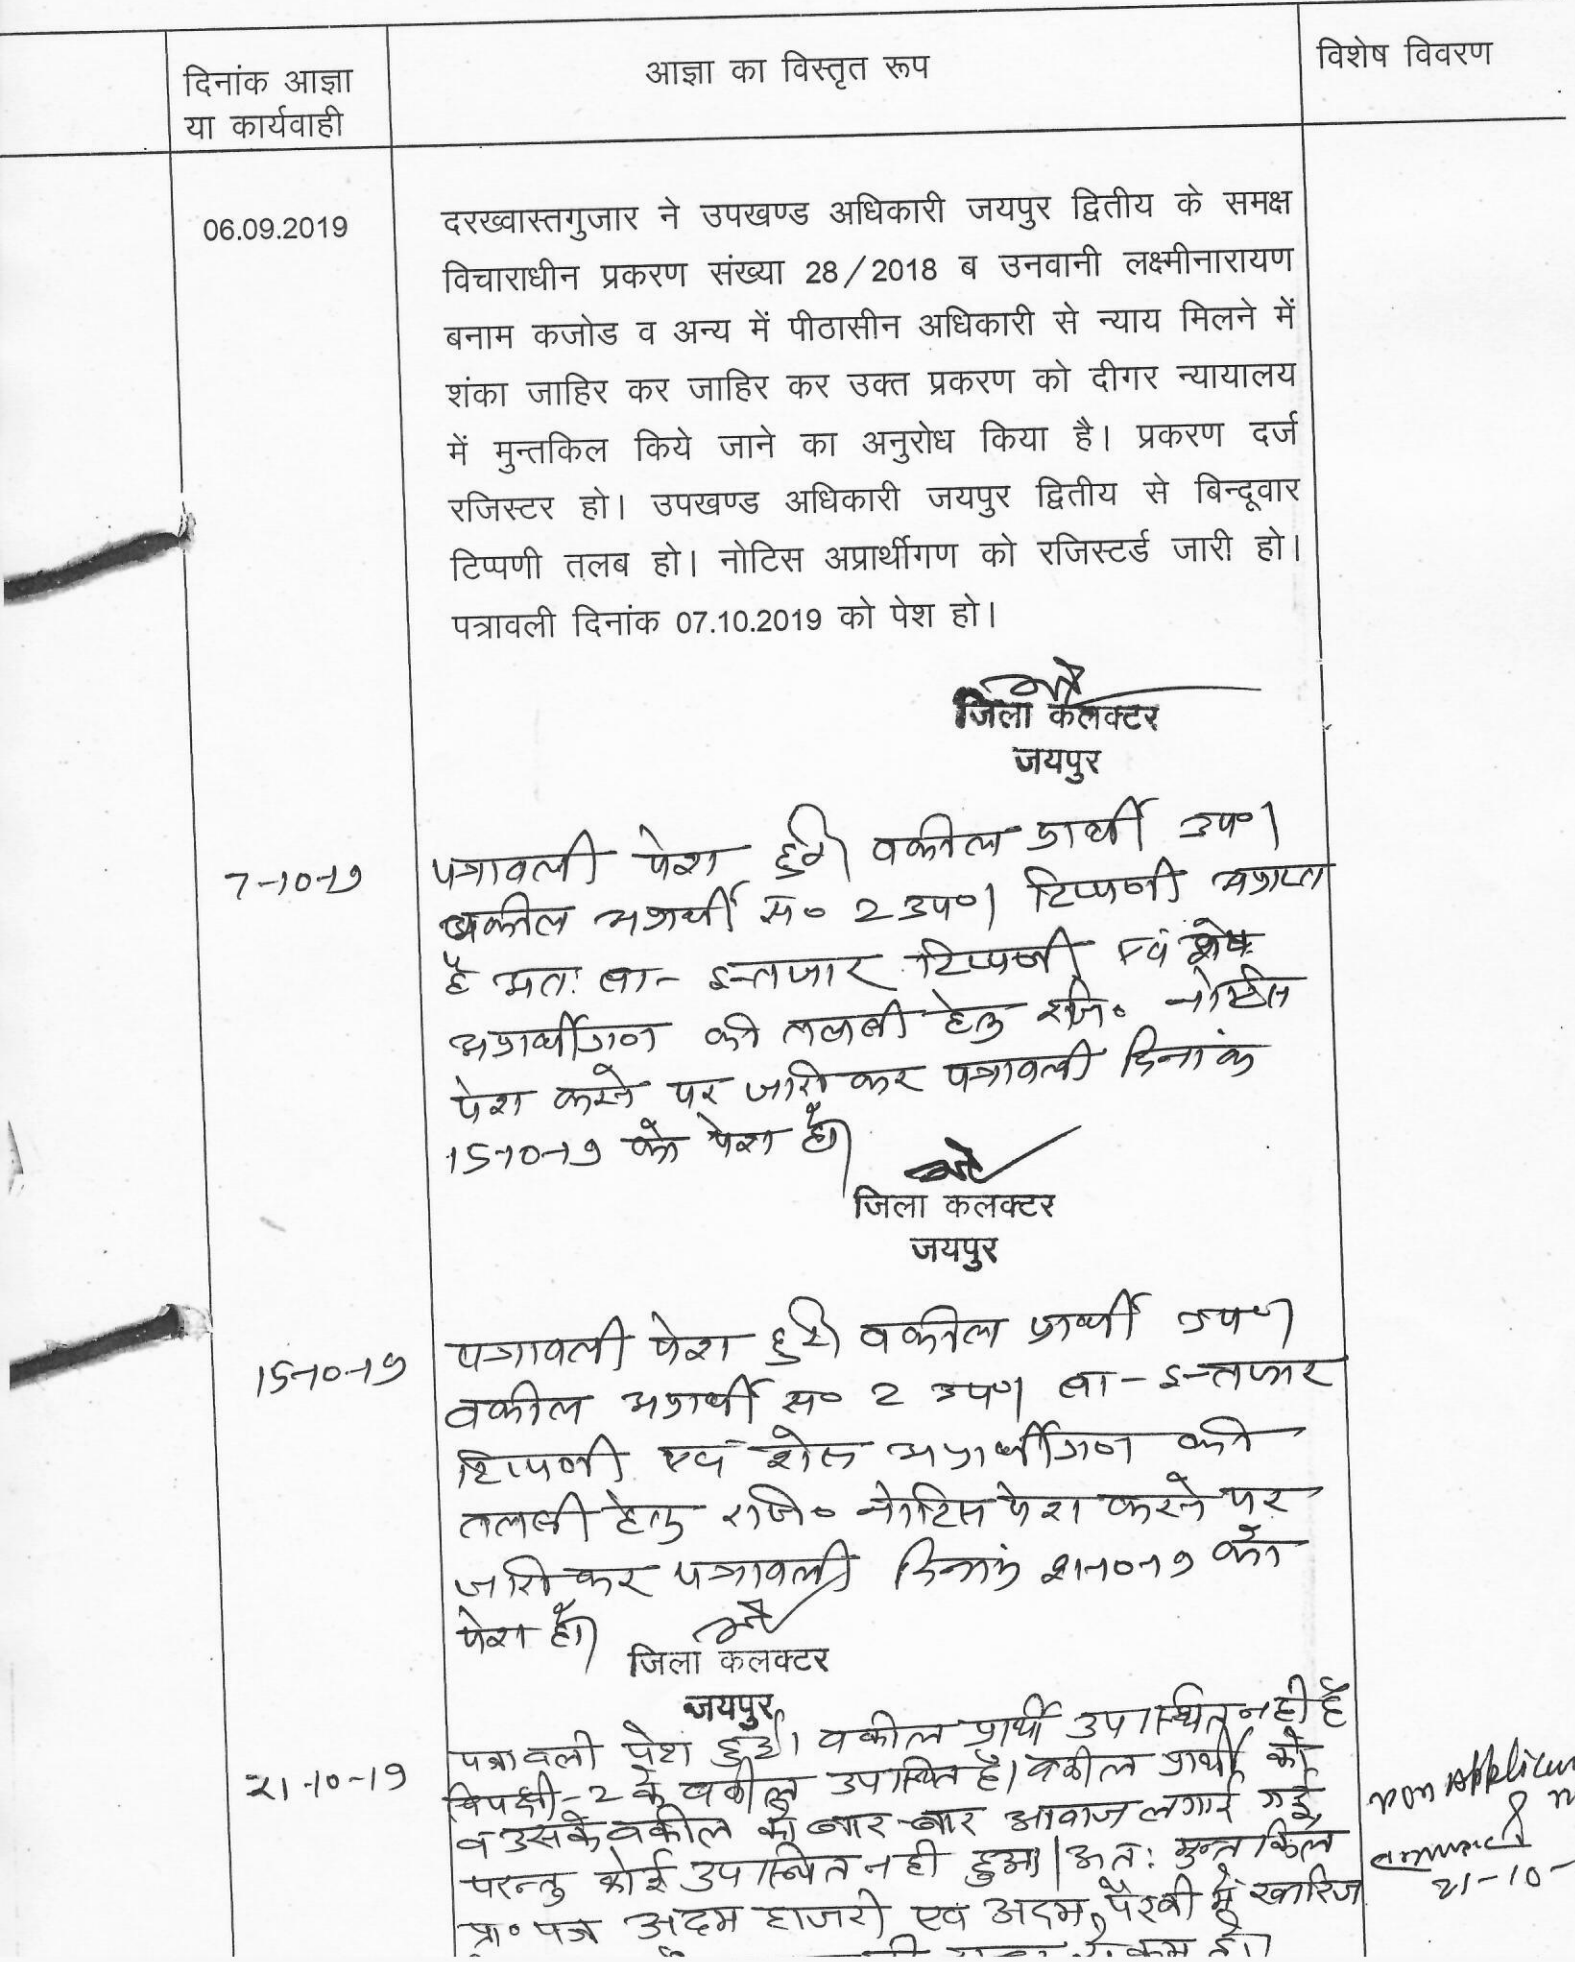 दिनांक आज्ञा
या कार्यवाही
आज्ञा का विस्तृत रूप
विशेष विवरण
06.09.2019
दरख्वास्तगुजार ने उपखण्ड अधिकारी जयपुर द्वितीय के समक्ष
विचाराधीन प्रकरण संख्या 28/2018 ब उनवानी लक्ष्मीनारायण
बनाम कजोड व अन्य में पीठासीन अधिकारी से न्याय मिलने में
शंका जाहिर कर जाहिर कर उक्त प्रकरण को दीगर न्यायालय
में मुन्तकिल किये जाने का अनुरोध किया है। प्रकरण दर्ज
रजिस्टर हो। उपखण्ड अधिकारी जयपुर द्वितीय से बिन्दूवार
टिप्पणी तलब हो। नोटिस अप्रार्थीगण को रजिस्टर्ड जारी हो।
पत्रावली दिनांक 07.10.2019 को पेश हो।
जिला कलक्टर
जयपुर
7-10-19
पत्रावली पेश हुई। वकील प्रार्थी उप०।
वकील अप्रार्थी स० 2 उप०। टिप्पणी अप्राप्त
है अतः बा-इन्तजार टिप्पणी एवं शेष
अप्रार्थीगण की तलबी हेतु रजि० नोटिस
पेश करने पर जारी कर पत्रावली दिनांक
15-10-19 को पेश हो।
जिला कलक्टर
जयपुर
15-10-19
पत्रावली पेश हुई। वकील प्रार्थी उप०।
वकील अप्रार्थी स० 2 उप०। बा-इन्तजार
टिप्पणी एवं शेष अप्रार्थीगण की
तलबी हेतु रजि० नोटिस पेश करने पर
जारी कर पत्रावली दिनांक 21-10-19 को
पेश हो।
जिला कलक्टर
जयपुर
21-10-19
पत्रावली पेश हुई। वकील प्रार्थी उपस्थित नही है
विपक्षी-2 के वकील उपस्थित है। वकील प्रार्थी को
व उसके वकील को बार-बार आवाज लगाई गई
परन्तु कोई उपस्थित नही हुआ। अतः मुन्तकिल
प्रा० पत्र अदम हाजरी एवं अदम पैरवी में खारिज
Non Applicant
21-10-